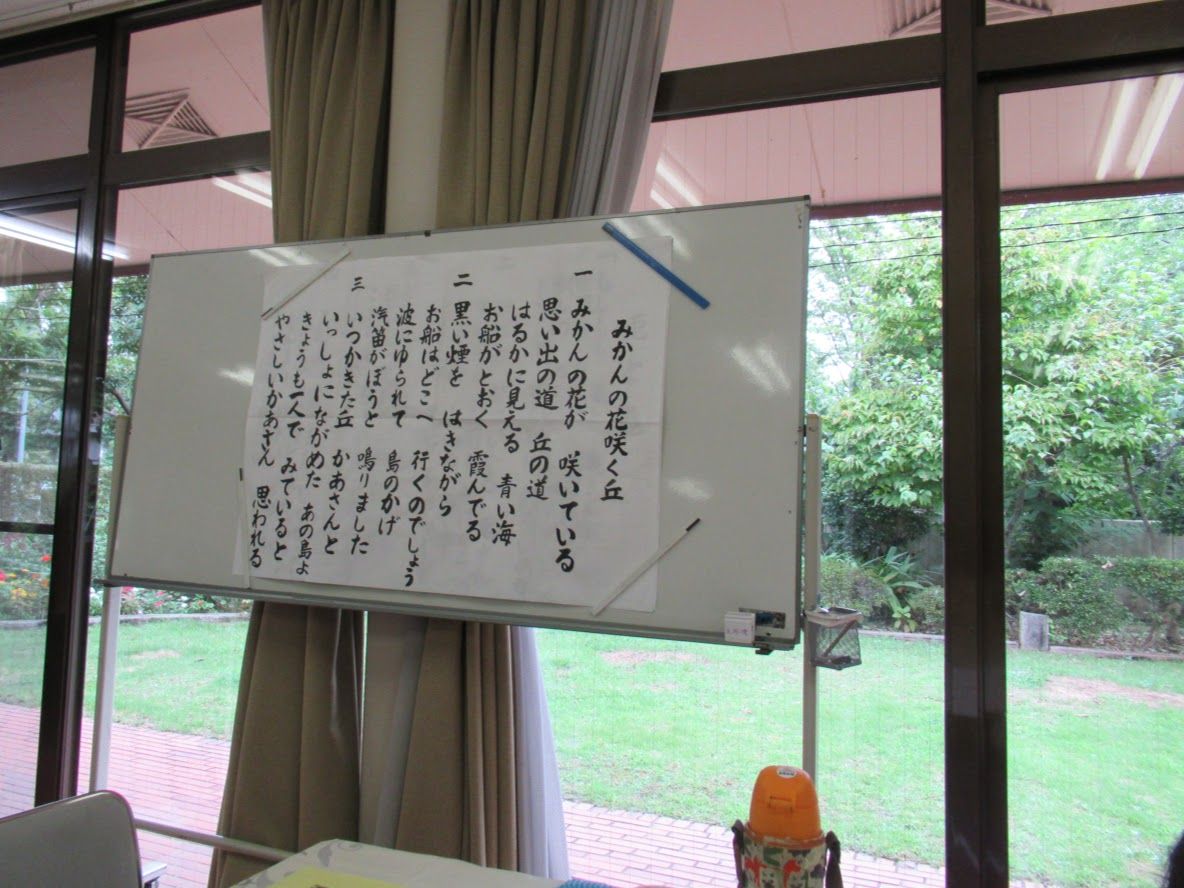 みかんの花咲く丘
一 みかんの花が 咲いている
思い出の道 丘の道
はるかに見える 青い海
お船がとおく 霞んでる
二 黒い煙を はきながら
お船はどこへ 行くのでしょう
波にゆられて 島のかげ
汽笛がぼうと 鳴りました
三 いつかきた丘 かあさんと
いっしょにながめた あの島よ
きょうも一人で みていると
やさしいかあさん 思われる